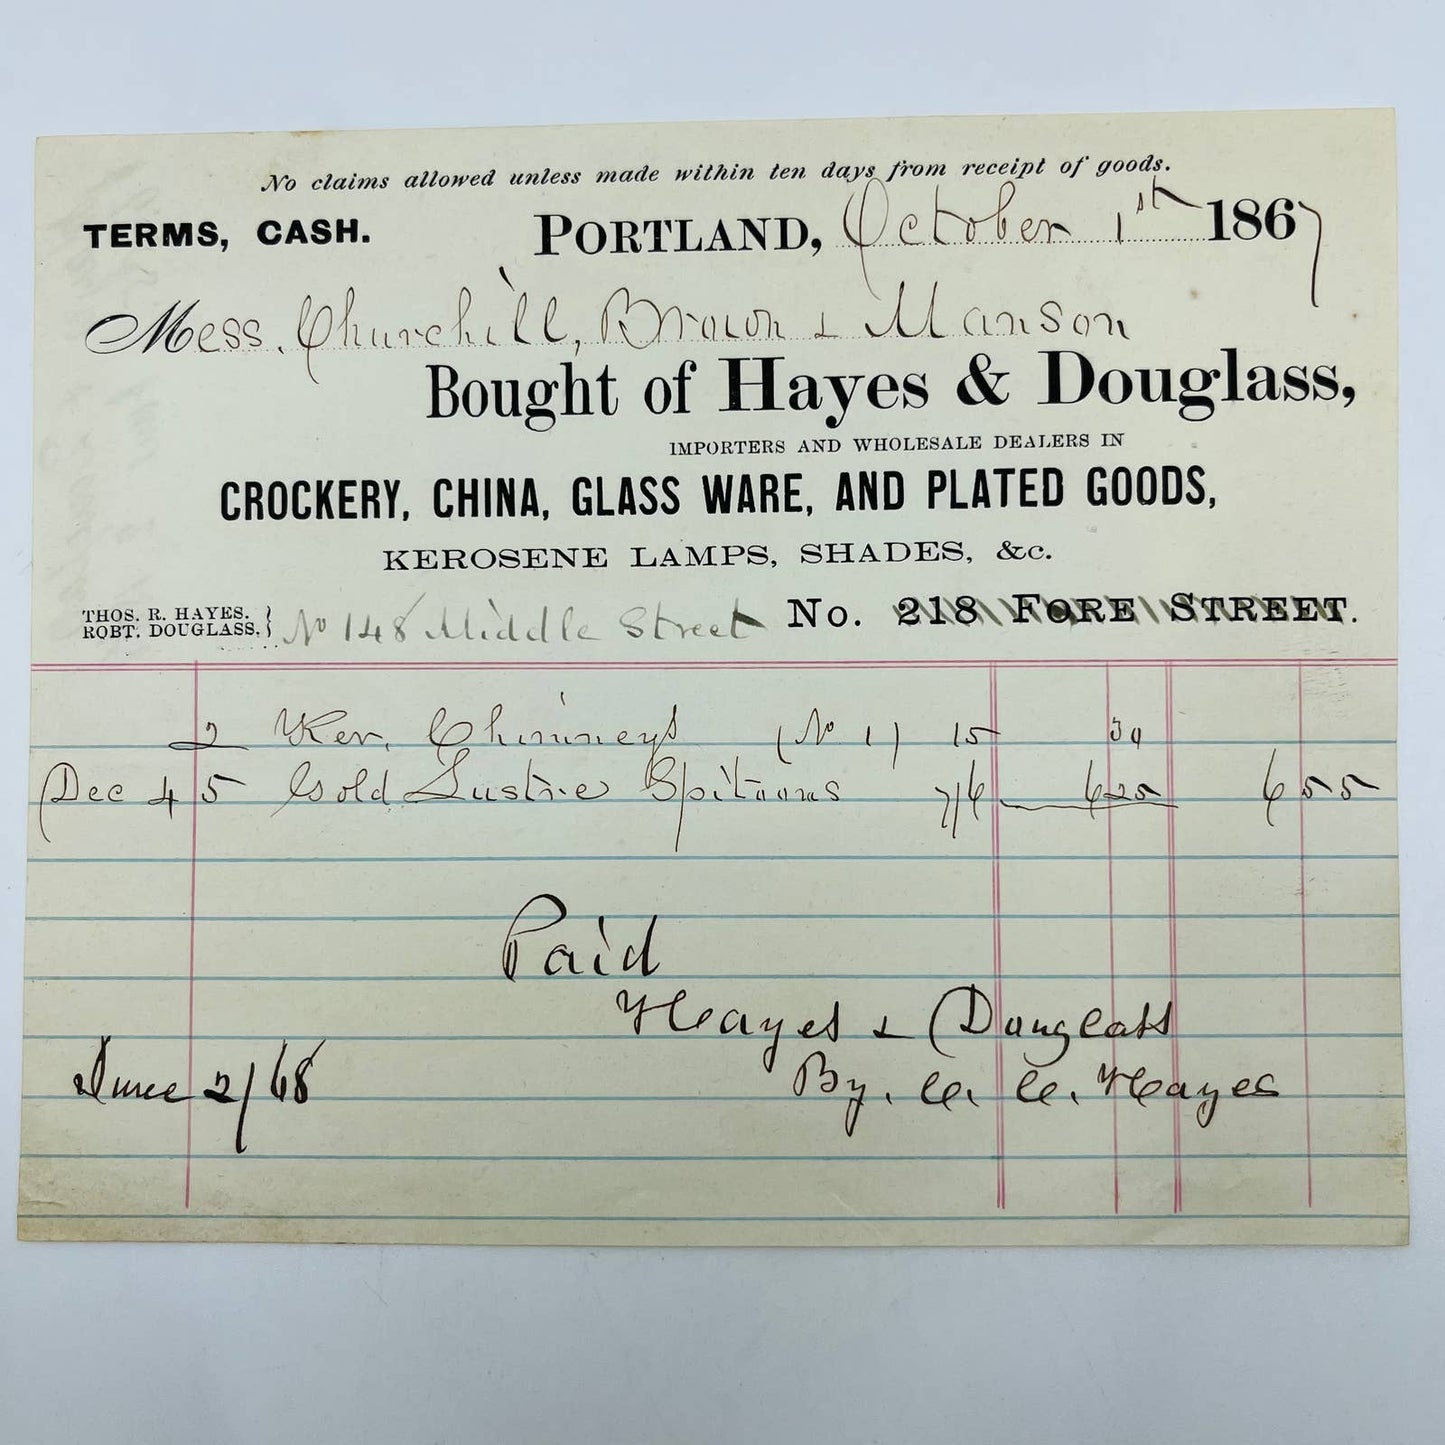 No claims allowed unless made within ten days from receipt of goods.
TERMS, CASH. PORTLAND, October 1st 1867
Mess. Churchill, Brown & Manson
Bought of Hayes & Douglass,
IMPORTERS AND WHOLESALE DEALERS IN
CROCKERY, CHINA, GLASS WARE, AND PLATED GOODS,
KEROSENE LAMPS, SHADES, &c.
THOS. R. HAYES.
ROBT. DOUGLASS.
No 148 Middle Street No. 218 FORE STREET.
2 Ker. Chimneys (No 1) 15 30
Dec 4 5 Gold Lustre Spitoons 7/6 6 25 6 55
Paid
Hayes & Douglass
By. C. C. Hayes
June 2/68